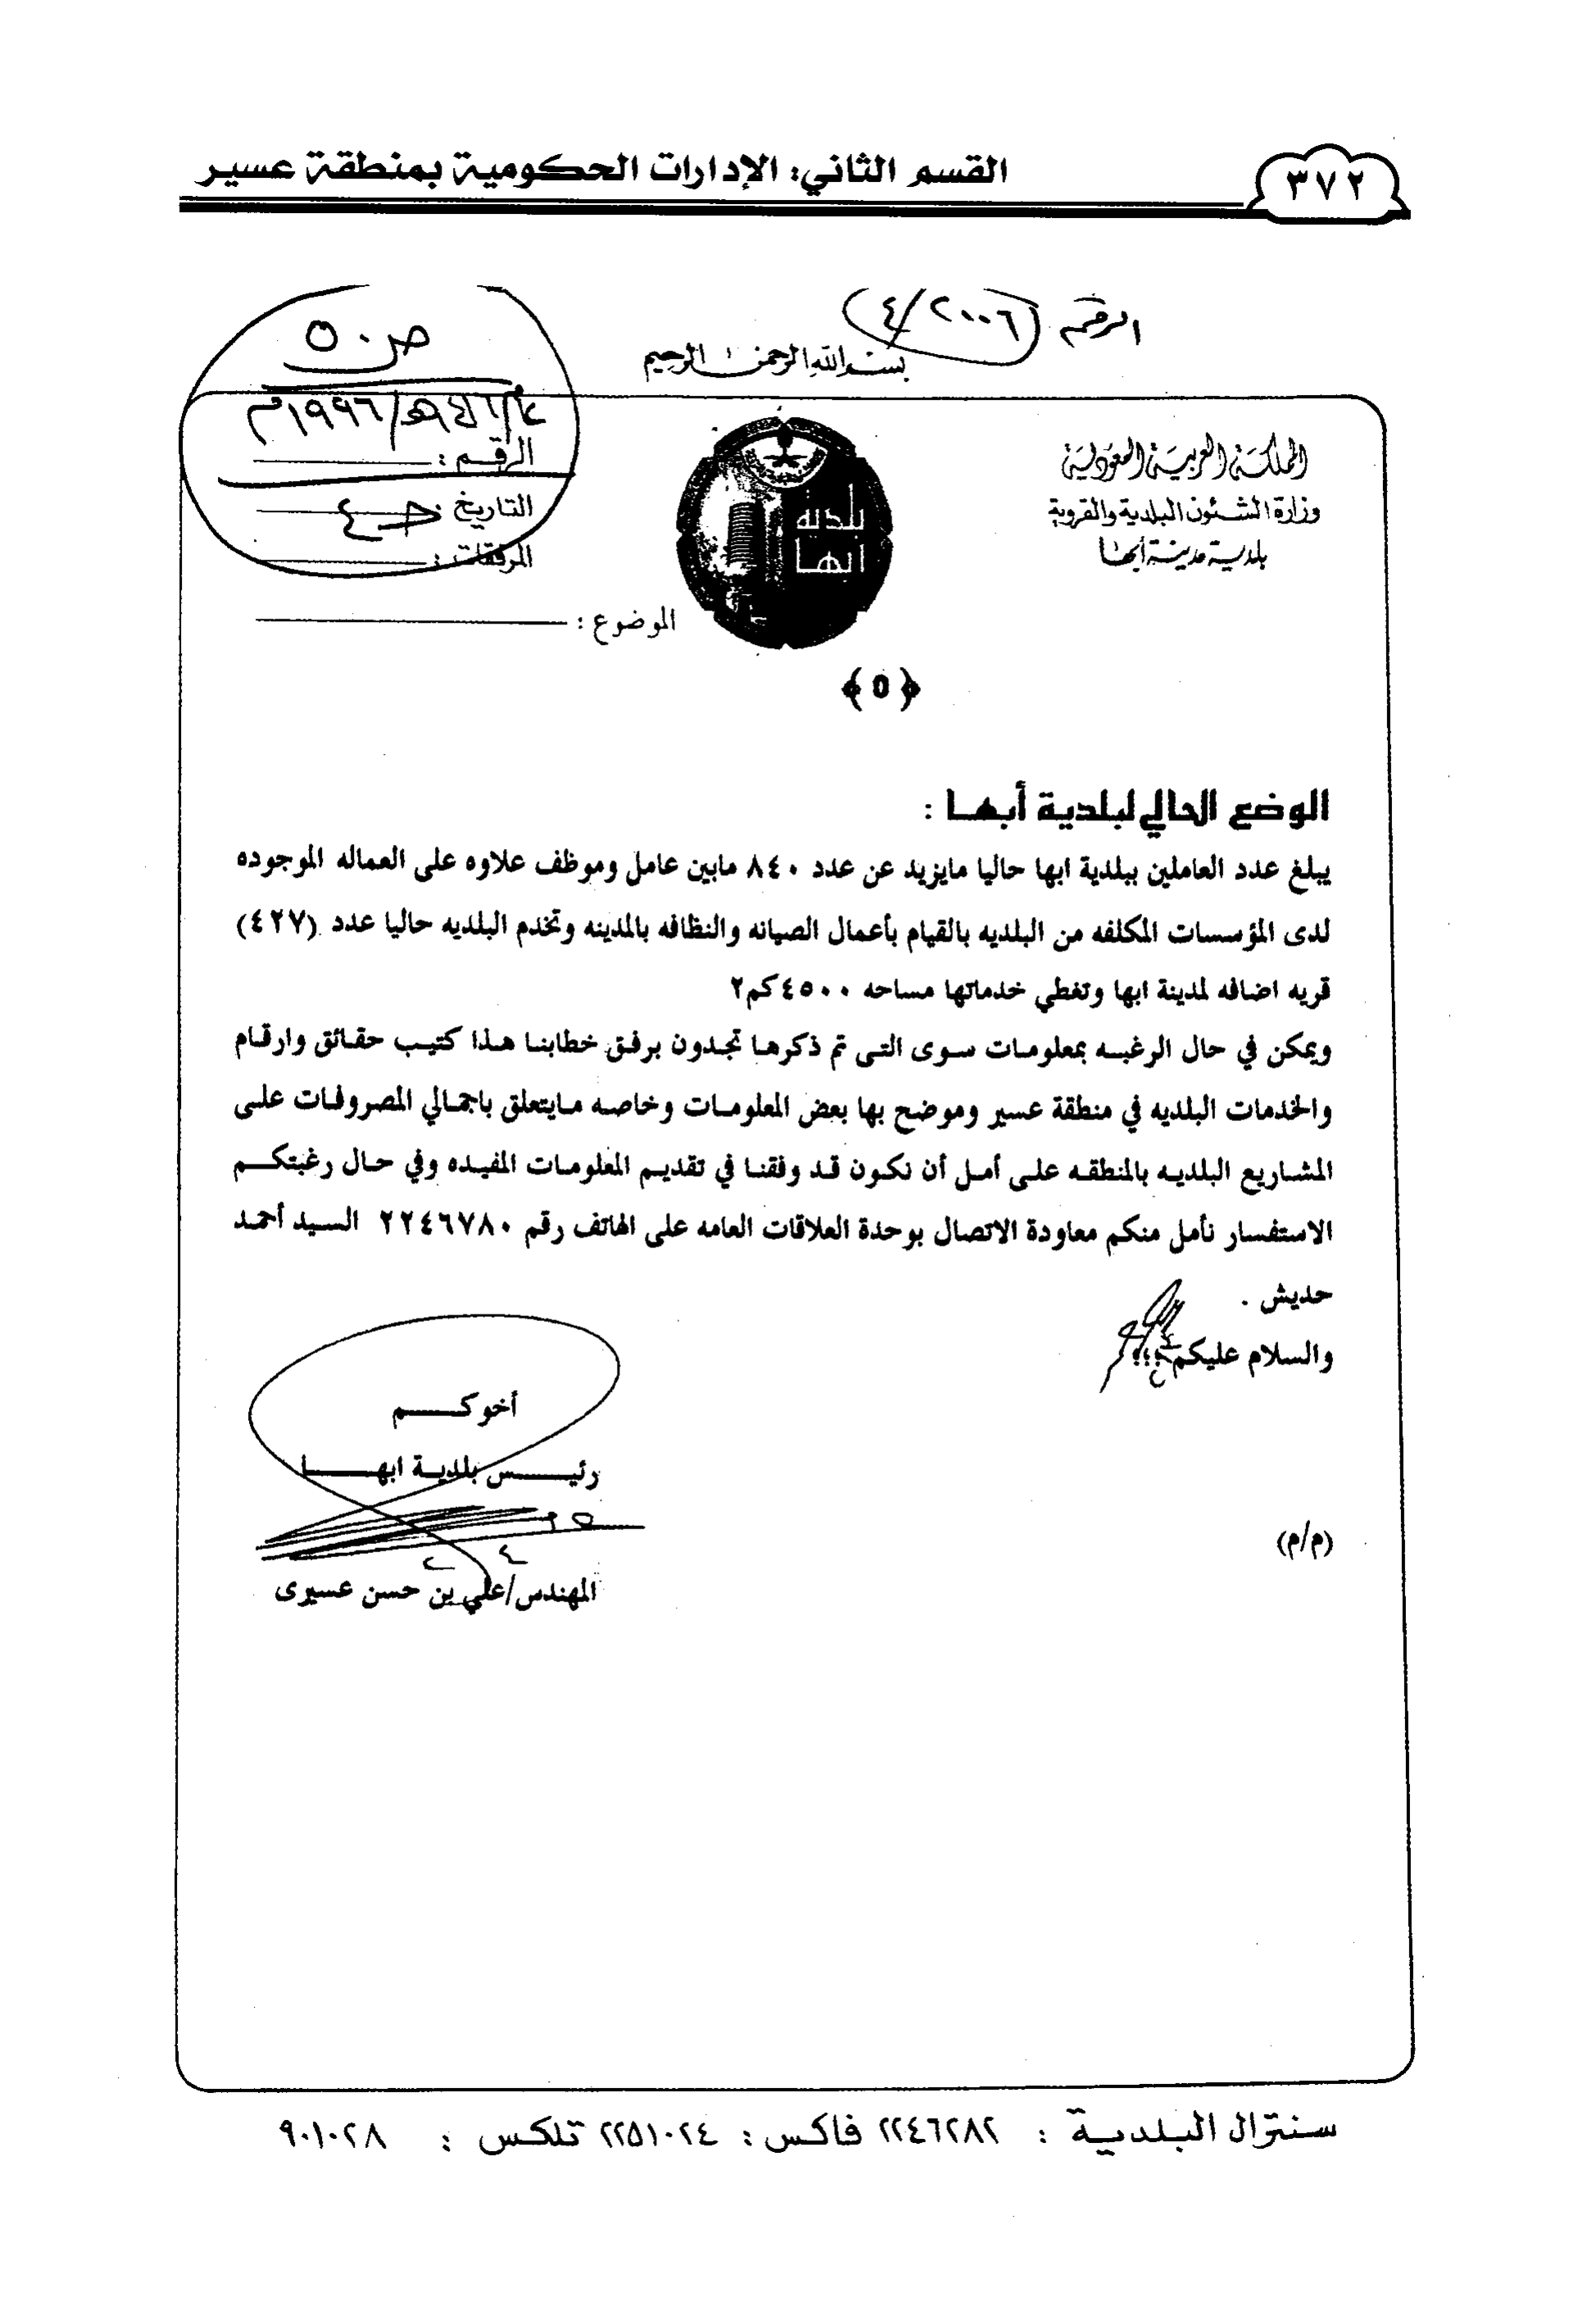 ٣٧٢
القسم الثاني: الإدارات الحكومية بمنطقة عسير
الرقم (٤/٢٠٠٦)
بسم الله الرحمن الرحيم
ص٥٠
المملكة العربية السعودية
وزارة الشئون البلدية والقروية
بلدية مدينة أبها
بلدية
أبها
/١٩٩٦م
الرقم :
التاريخ :
المرفقات :
الموضوع :
﴿٥﴾
الوضع الحالي لبلدية أبها :
يبلغ عدد العاملين ببلدية ابها حاليا مايزيد عن عدد ٨٤٠ مابين عامل وموظف علاوه على العماله الموجوده
لدى المؤسسات المكلفه من البلديه بالقيام بأعمال الصيانه والنظافه بالمدينه وتخدم البلديه حاليا عدد (٤٢٧)
قريه اضافه لمدينة ابها وتغطي خدماتها مساحه ٤٥٠٠كم٢
ويمكن في حال الرغبه بمعلومات سوى التى تم ذكرها تجدون برفق خطابنا هذا كتيب حقائق وارقام
والخدمات البلديه في منطقة عسير وموضح بها بعض المعلومات وخاصه مايتعلق باجمالي المصروفات على
المشاريع البلديه بالمنطقه على أمل أن نكون قد وفقنا في تقديم المعلومات المفيده وفي حال رغبتكم
الاستفسار نأمل منكم معاودة الاتصال بوحدة العلاقات العامه على الهاتف رقم ٢٢٤٦٧٨٠ السيد أحمد
حديش .
والسلام عليكم ؛؛؛
أخوكم
رئيس بلدية ابها
المهندس/علي بن حسن عسيرى
(م/م)
سنترال البلدية : ٢٢٤٦٢٨٢ فاكس : ٢٢٥١٠٢٤ تلكس : ٩٠١٠٢٨